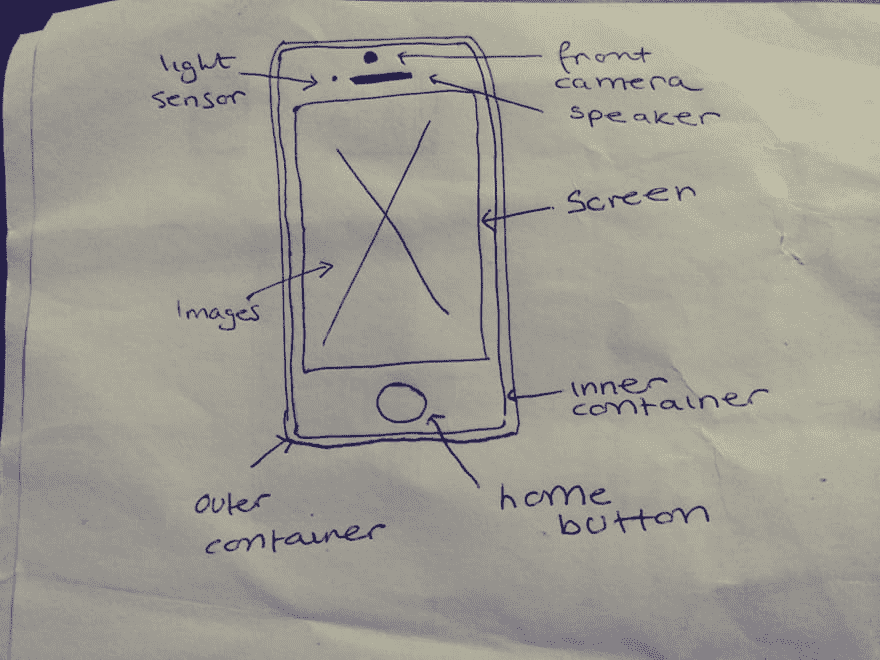 light
sensor
front
camera
speaker
Screen
Images
inner
container
outer
container
home
button